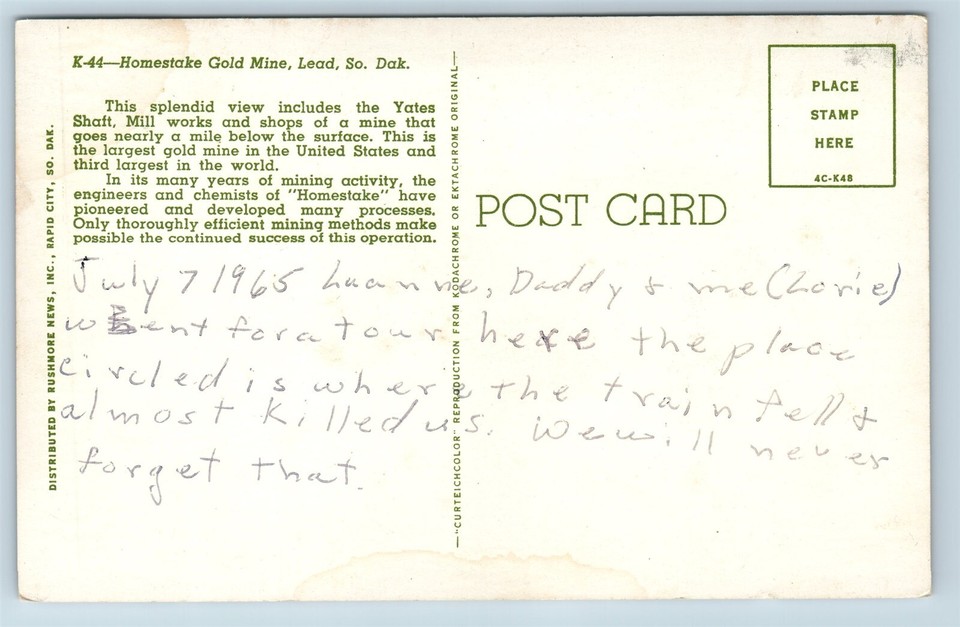 K-44—Homestake Gold Mine, Lead, So. Dak.
This splendid view includes the Yates
Shaft, Mill works and shops of a mine that
goes nearly a mile below the surface. This is
the largest gold mine in the United States and
third largest in the world.
In its many years of mining activity, the
engineers and chemists of "Homestake" have
pioneered and developed many processes.
Only thoroughly efficient mining methods make
possible the continued success of this operation.
DISTRIBUTED BY RUSHMORE NEWS, INC., RAPID CITY, SO. DAK.
—"CURTEICHCOLOR" REPRODUCTION FROM KODACHROME OR EKTACHROME ORIGINAL—
PLACE
STAMP
HERE
4C-K48
POST CARD
July 7 1965 Luanne, Daddy & me (Lorie)
went for a tour here the place
circled is where the train fell &
almost killed us. We will never
forget that.